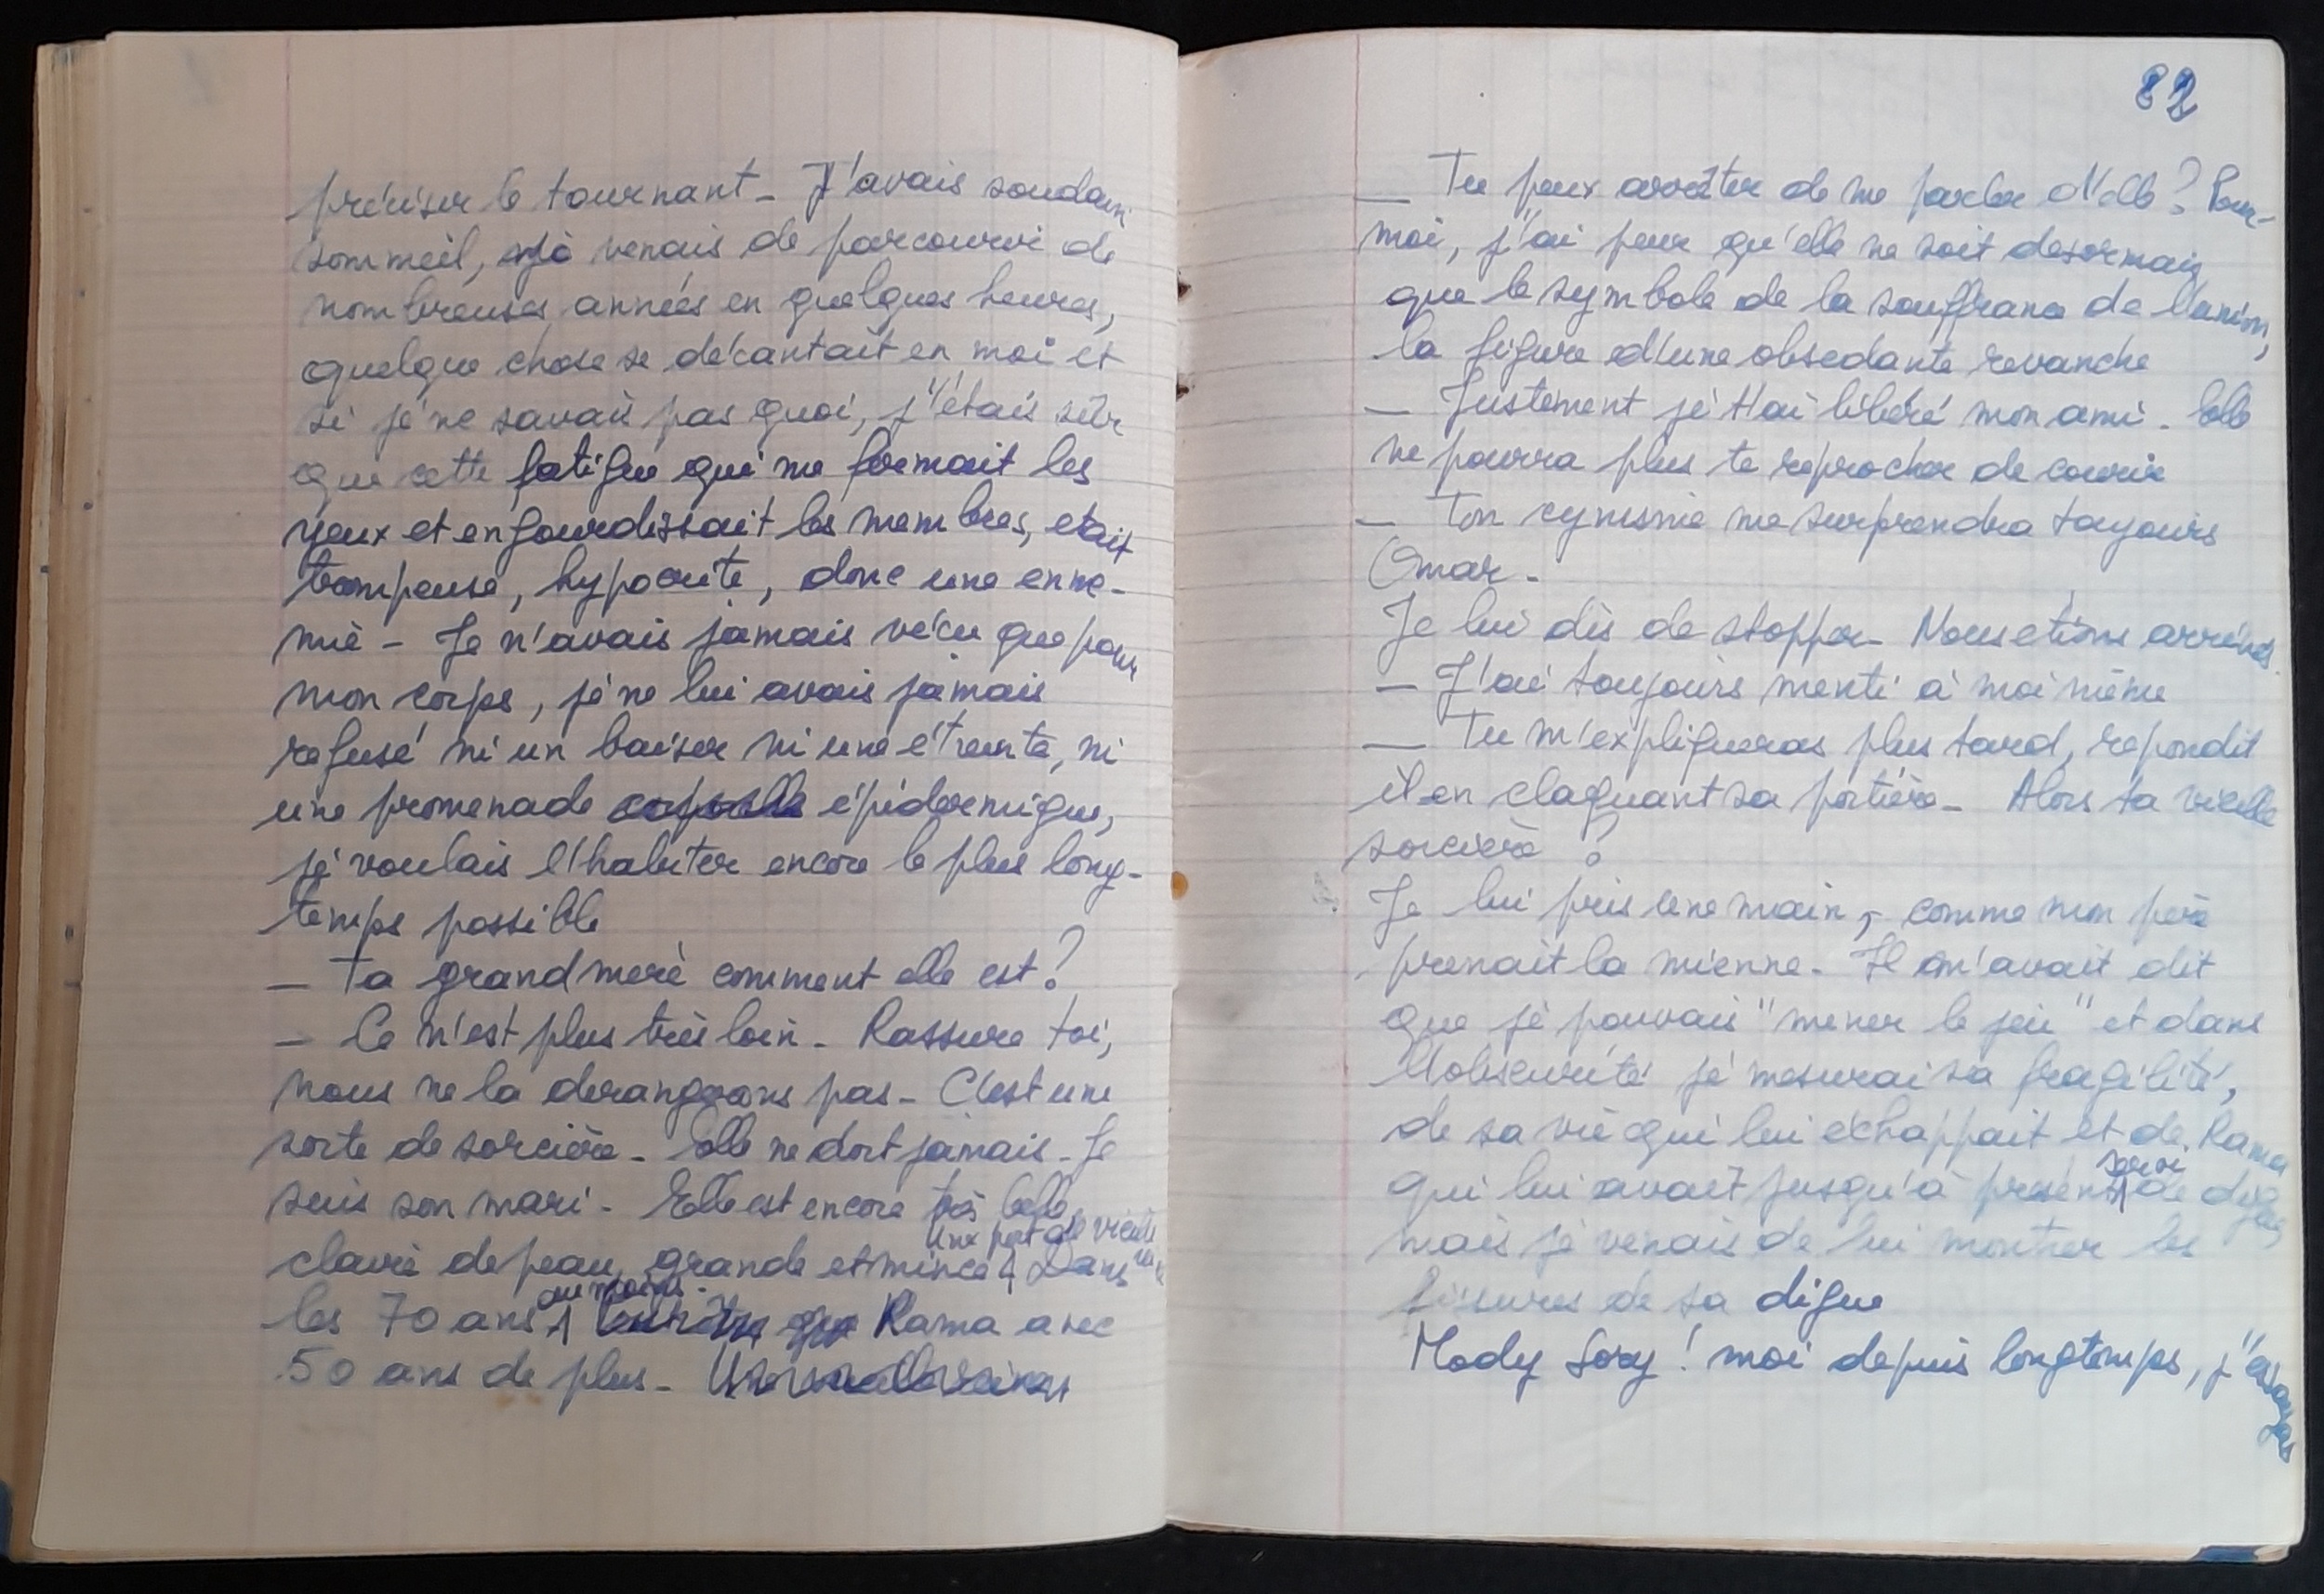 préciser le tournant - J'avais soudain
sommeil, je venais de parcourir de
nombreuses années en quelques heures,
quelque chose se décantait en moi et
si je ne savais pas quoi, j'étais sûr
que cette fatigue qui me fermait les
yeux et engourdissait les membres, etait
trompeuse, hypocrite, donc une enne-
mie - Je n'avais jamais vécu que pour
mon corps, je ne lui avais jamais
refusé ni un baiser ni une étreinte, ni
une promenade épidermique,
je voulais l'habiter encore le plus long-
temps possible
— Ta grand mère comment elle est?
— Ce n'est plus très loin - Rassure toi,
nous ne la derangeons pas - C'est une
sorte de sorcière - Elle ne dort jamais - Je
suis son mari - Elle est encore très belle
claire de peau, grande et mince Dans
les 70 ans au moins - Rama avec
50 ans de plus -
82
— Tu peux arrêter de me parler d'elle? Pour-
moi, j'ai peur qu'elle ne soit desormais
que le symbole de la souffrance de l'union,
la figure d'une obsedante revanche
— Justement je t'ai libéré mon ami - Elle
ne pourra plus te reprocher de courir
— Ton cynisme me surprendra toujours
Omar -
Je lui dis de stopper - Nous etions arrivés.
— J'ai toujours menti à moi même
— Tu m'expliqueras plus tard, repondit
il en claquant sa portière - Alors ta vieille
sorcière ?
Je lui pris une main, comme mon père
prenait la mienne - Il m'avait dit
que je pouvais "mener le jeu" et dans
l'obscurité je mesurai sa fragilité,
de sa vie qui lui échappait et de Rama
qui lui avait jusqu'à présent servi de digue
mais je venais de lui montrer les
fissures de sa digue
Mody Sory ! moi depuis longtemps, j'essayais